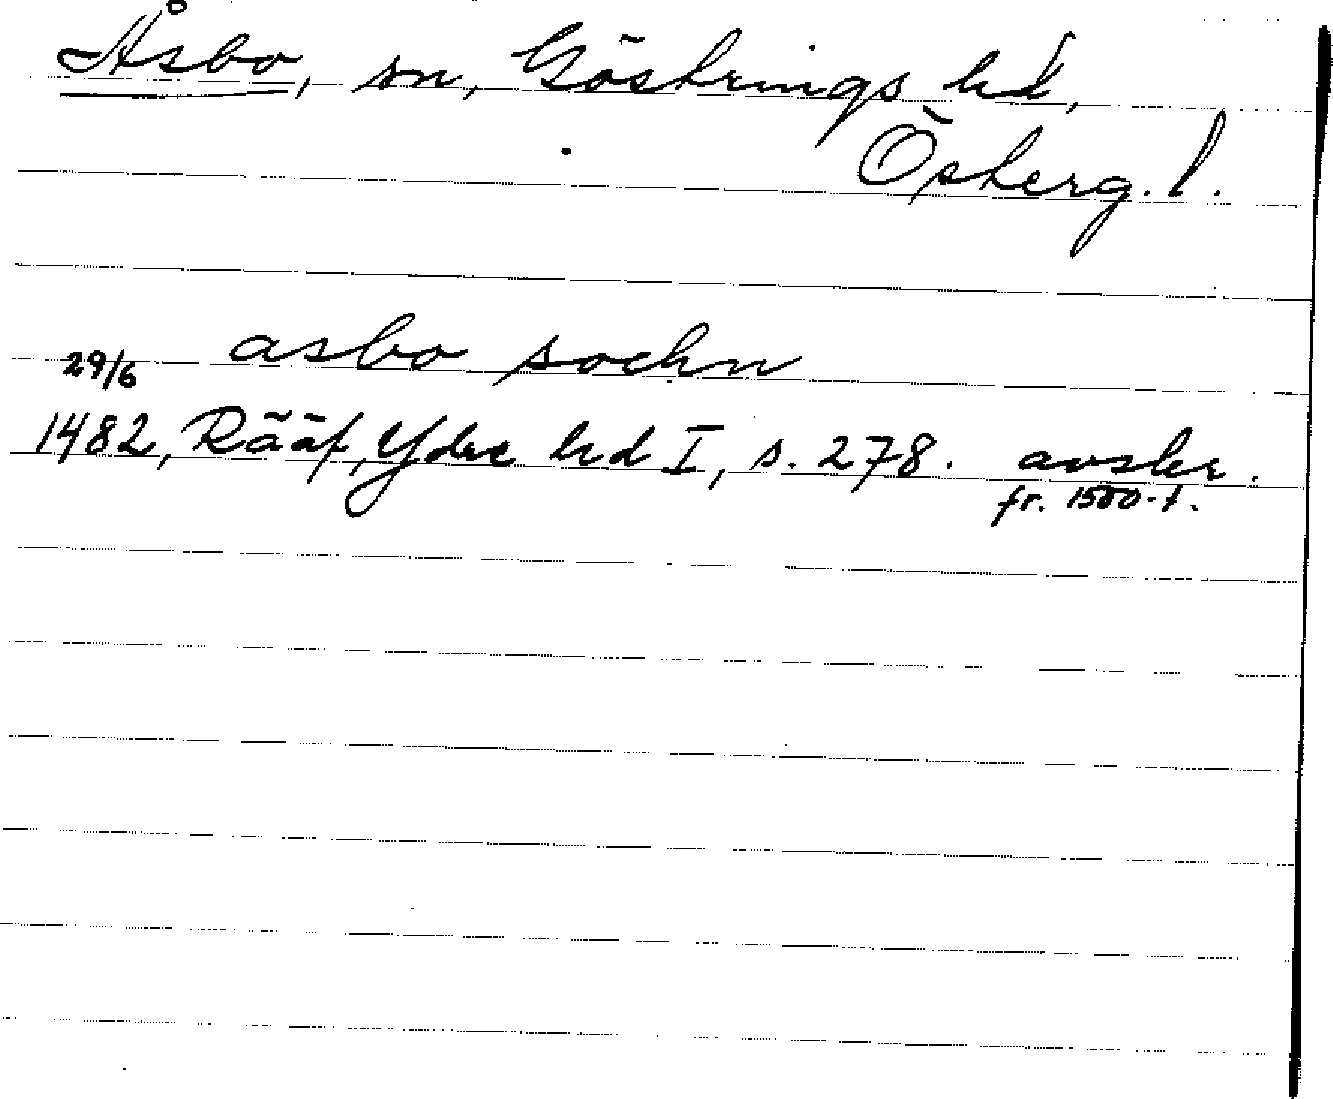 Åsbo, sn, Göstrings hd,
Österg. l.
asbo sochn
29/6
1482, Rääf, Ydre hd I, s. 278. avskr.
fr. 1500-t.